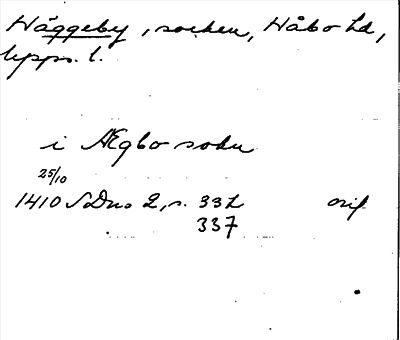 Häggeby, socken, Håbo hd,
Upps. l.
i Ægbo sokn
25/10
1410 SDns 2, s. 332 orig
337